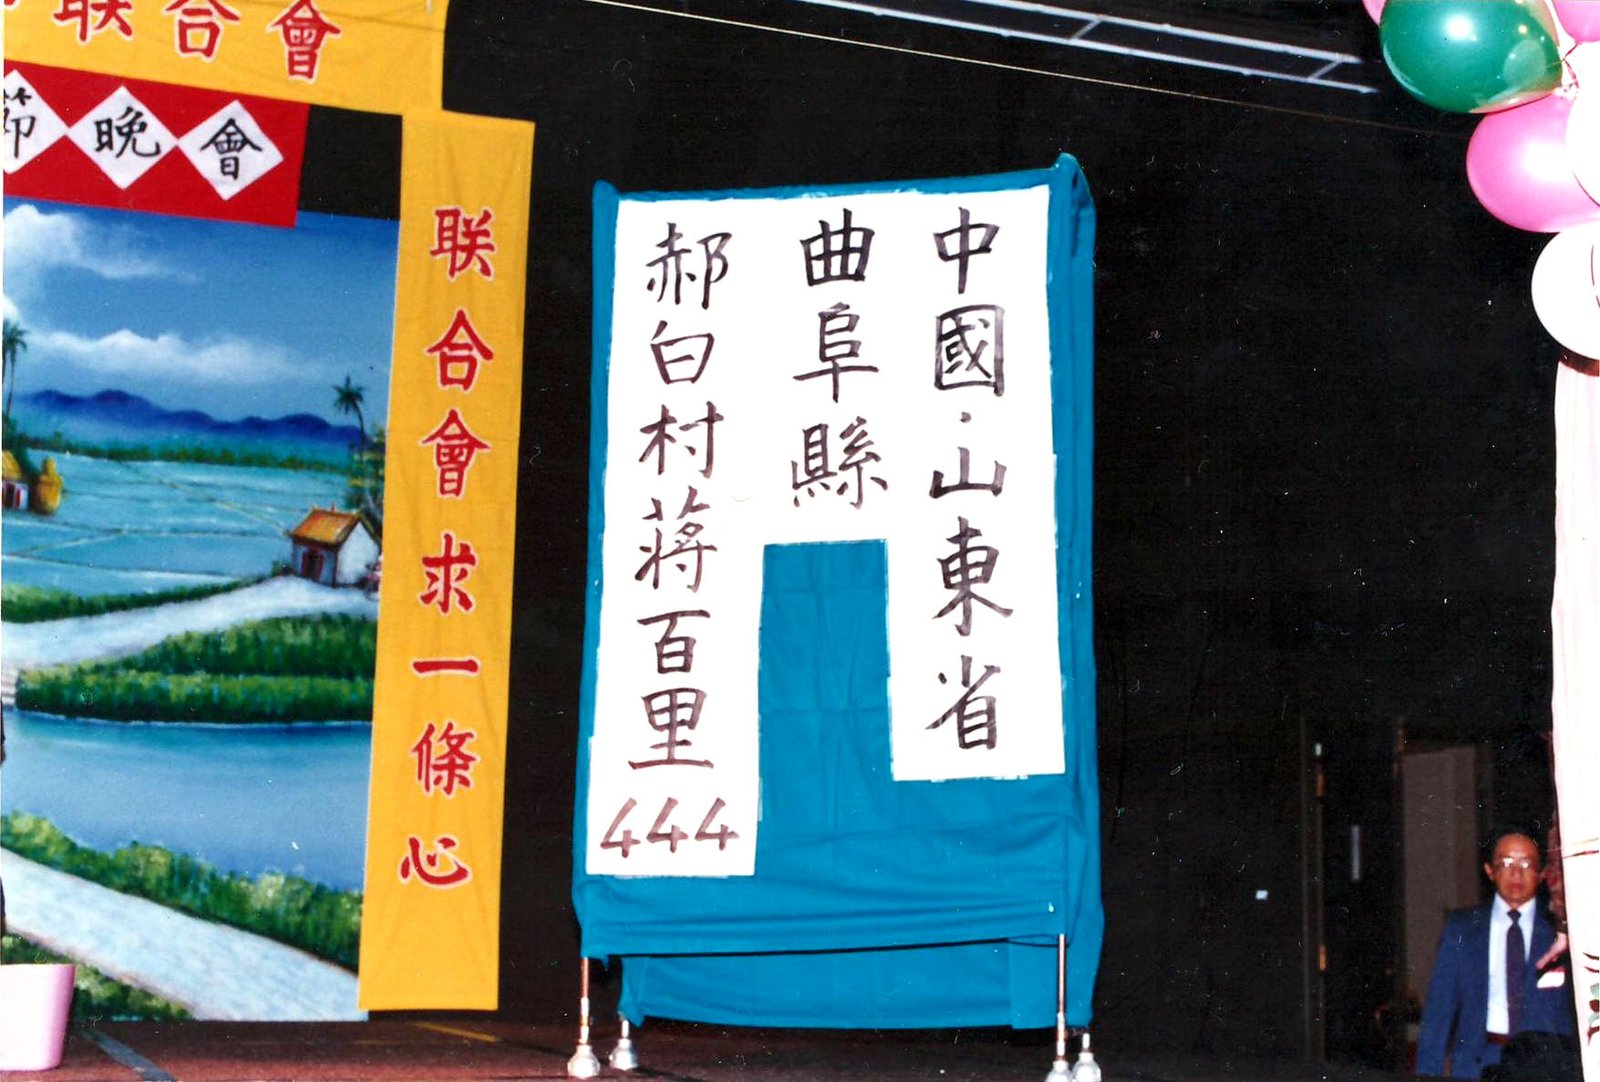 联合會
節晚會
联合會求一條心
中國·山東省
曲阜縣
郝白村蔣百里
444